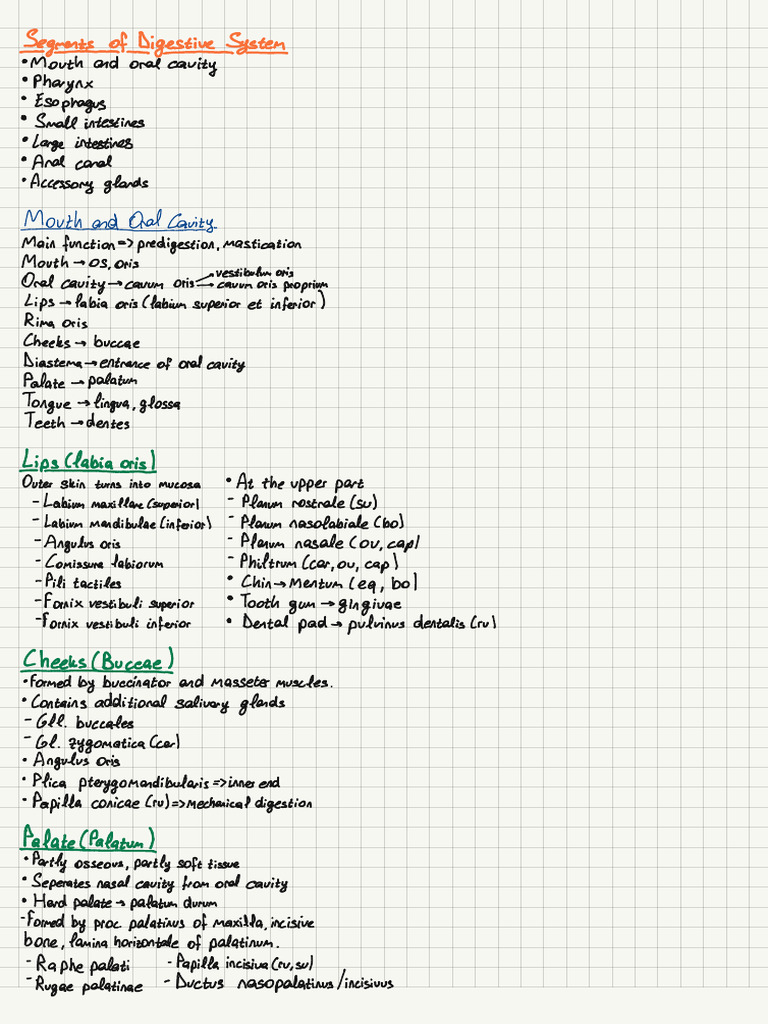 Segments of Digestive System
• Mouth and oral cavity
• Pharynx
• Esophagus
• Small intestines
• Large intestines
• Anal canal
• Accessory glands
Mouth and Oral Cavity
Main function => predigestion, mastication
Mouth → os, oris
Oral cavity → cavum oris → vestibulum oris
→ cavum oris proprium
Lips → labia oris (labium superior et inferior)
Rima oris
Cheeks → buccae
Diastema → entrance of oral cavity
Palate → palatum
Tongue → lingua, glossa
Teeth → dentes
Lips (labia oris)
Outer skin turns into mucosa
- Labium maxillare (superior)
- Labium mandibulae (inferior)
- Angulus oris
- Comissura labiorum
- Pili tactiles
- Fornix vestibuli superior
- Fornix vestibuli inferior
• At the upper part
- Planum rostrale (su)
- Planum nasolabiale (bo)
- Planum nasale (ov, cap)
- Philtrum (car, ov, cap)
• Chin → Mentum (eq, bo)
• Tooth gum → gingivae
• Dental pad → pulvinus dentalis (ru)
Cheeks (Buccae)
• Formed by buccinator and masseter muscles.
• Contains additional salivary glands
- Gll. buccales
- Gl. zygomatica (car)
• Angulus oris
• Plica pterygomandibularis => inner end
• Papilla conicae (ru) => mechanical digestion
Palate (Palatum)
• Partly osseous, partly soft tissue
• Seperates nasal cavity from oral cavity
• Hard palate → palatum durum
- Formed by proc. palatinus of maxilla, incisive
bone, lamina horizontale of palatinum.
- Raphe palati - Papilla incisiva (ru, su)
- Rugae palatinae - Ductus nasopalatinus/incisivus